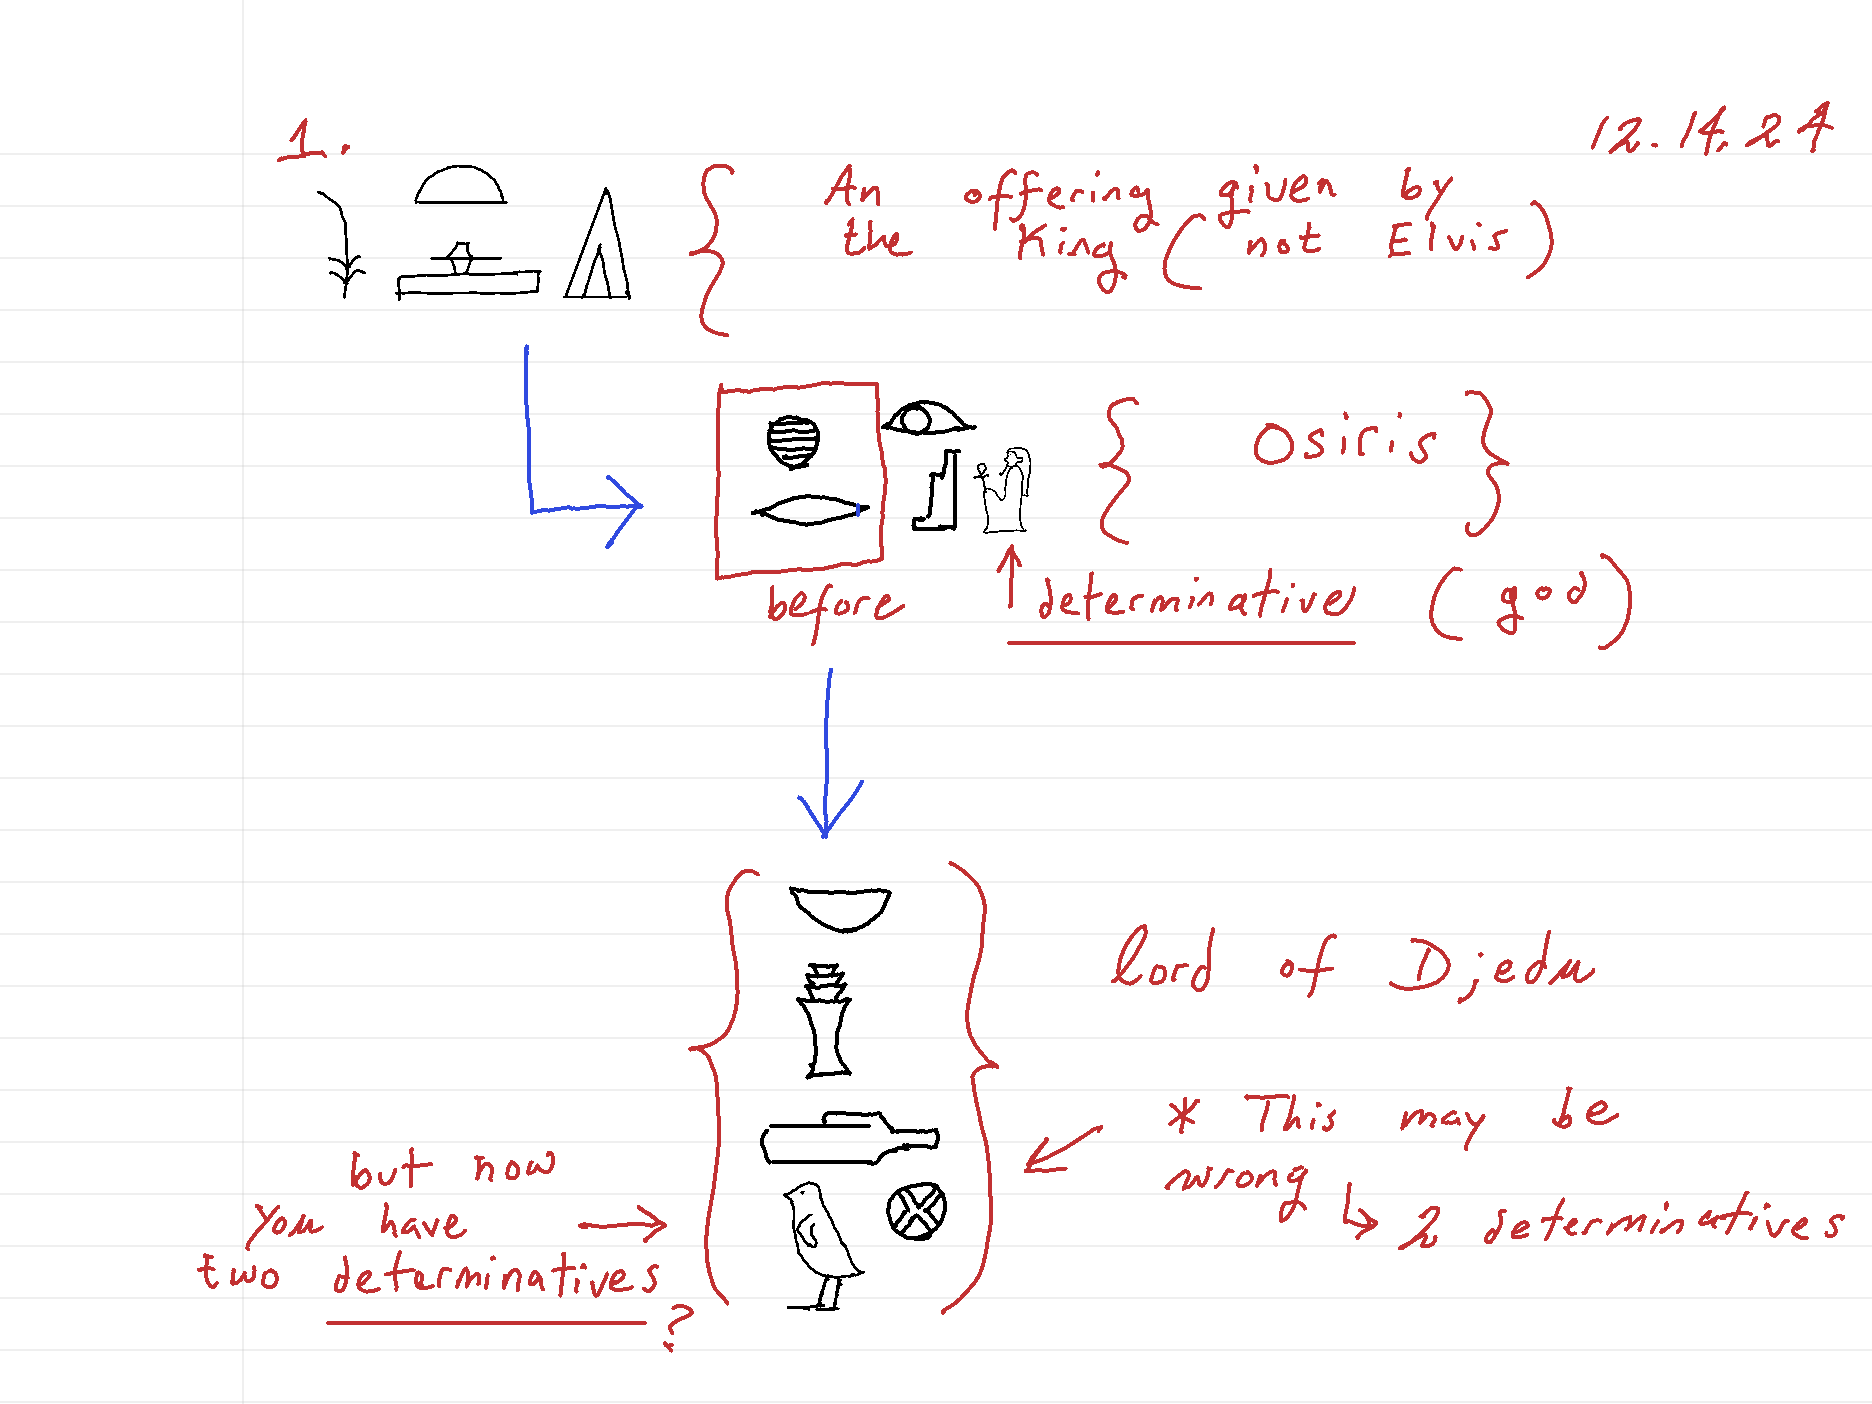 1.
12.14.24
𓇓 𓏏 𓊵 𓏙 An offering given by
the King (not Elvis)
𓐍 𓂋 𓁹 𓊨 𓀭 Osiris
before
determinative (god)
𓎟
𓊽
lord of Djedu
𓂧
* This may be
wrong
2 determinatives
𓅱 𓊖
but now
you have
two determinatives
?